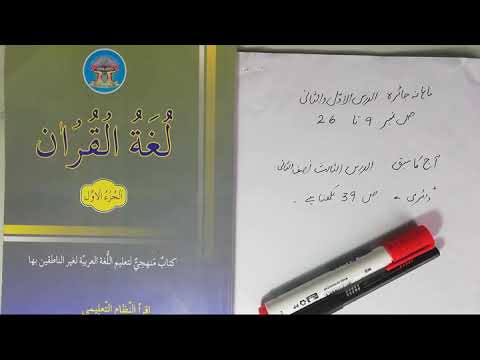 لُغَةُ الْقُرْآن
الجُزءُ الأوّل
كتابٌ مَنهجيٌّ لتعليم اللُّغة العربيّة لغير الناطقين بها
اقرأ النّظام التّعليمي
ماہانہ جائزہ الدرس الاوّل والثانی
ص نمبر ۹ تا 26
آج کا سبق الدرس الثالث نصف الثانی
ڈائری ← ص 39 لکھنا ہے۔